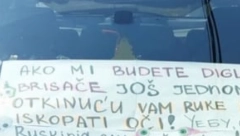 AKO MI BUDETE DIGL
BRISAČE JOŠ JEDNOM
OTKINUĆU VAM RUKE
ISKOPATI OČI! YEBY,